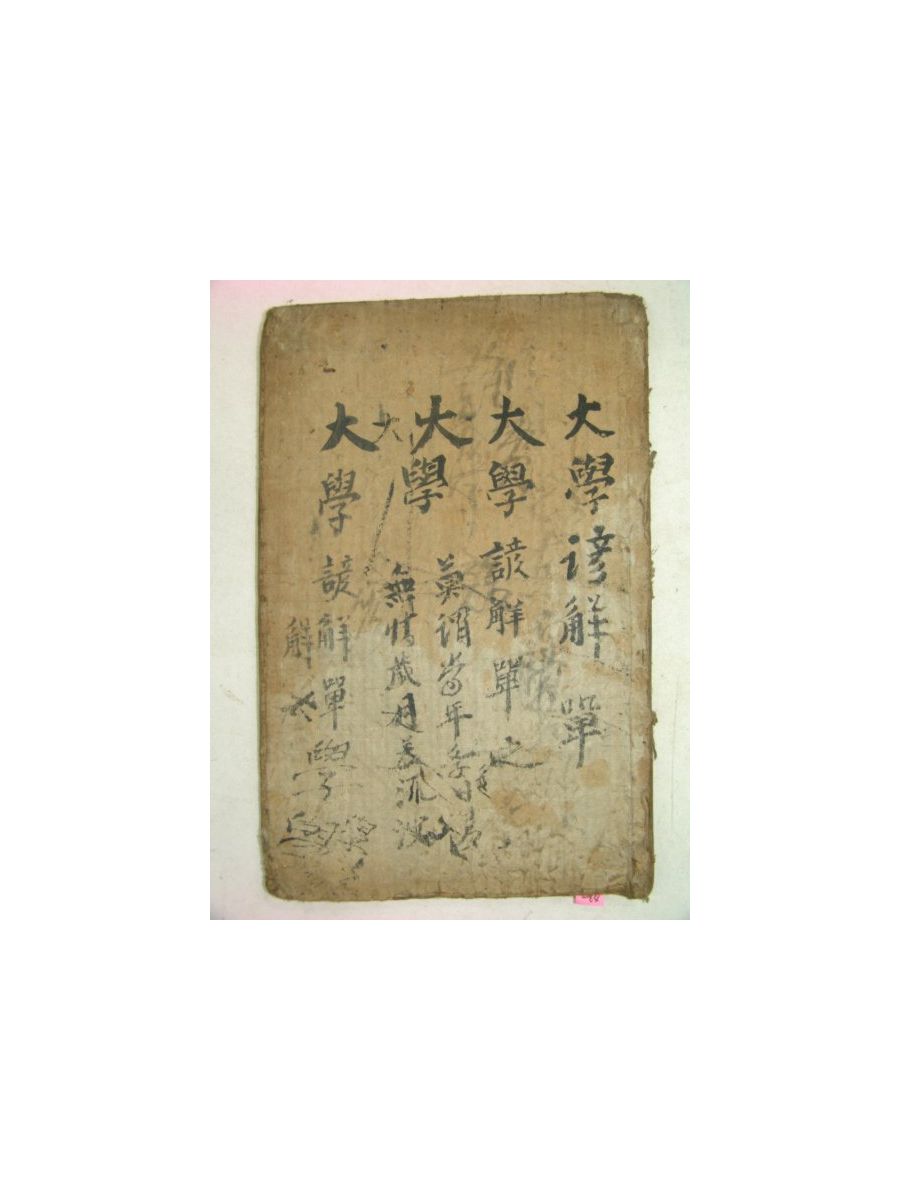 大學諺解 單
大學諺解單之
大學
莫謂當年學日
無情歲月若流
大
大學諺解單學
解